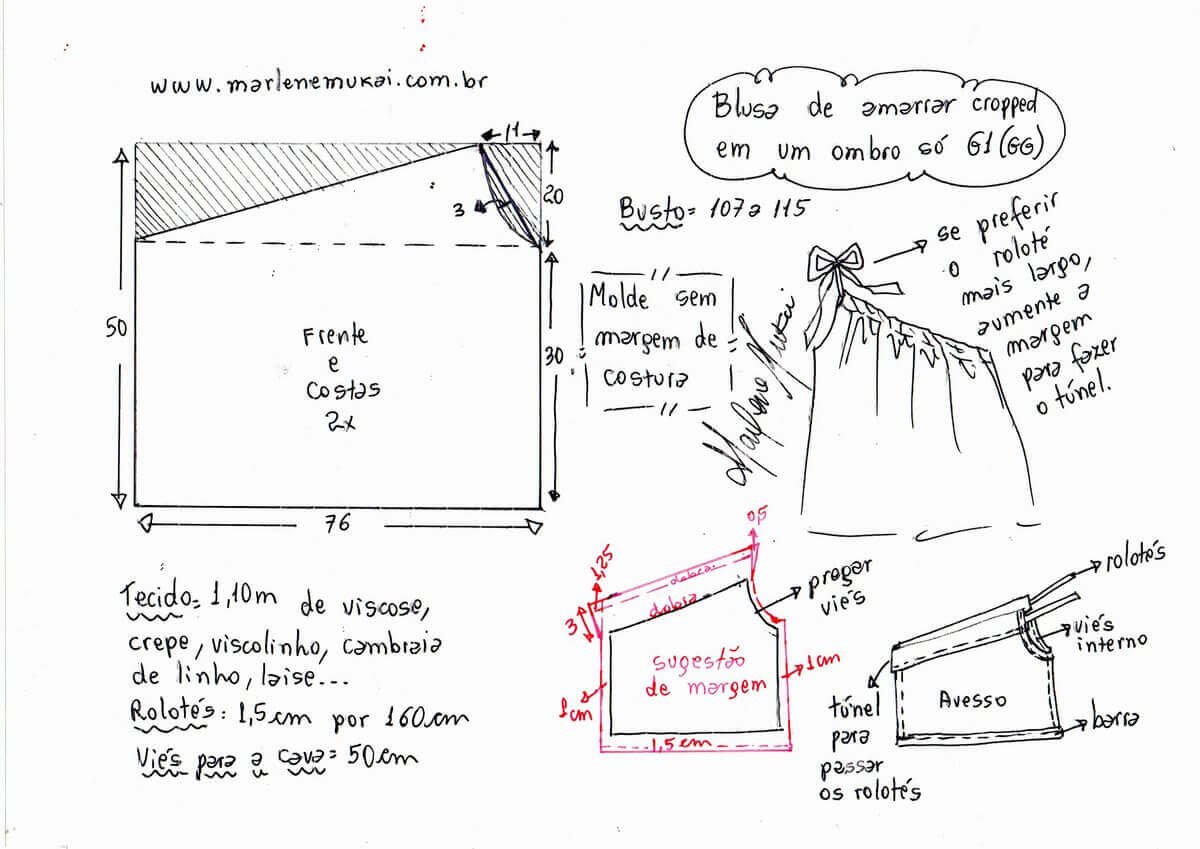 www.marlenemukai.com.br
Blusa de amarrar cropped
em um ombro só G1(GG)
Busto= 107 a 115
11
20
3
50
30
76
Frente
e
Costas
2x
Molde sem
margem de
costura
Marlene Mukai
se preferir
o roloté
mais largo,
aumente a
margem
para fazer
o túnel.
Tecido= 1,10m de viscose,
crepe, viscolinho, cambraia
de linho, laise...
Rolotés: 1,5cm por 160cm
Viés para a cava= 50cm
0,5
1,25
3
dobra
dobra
pregar
viés
sugestão
de margem
1cm
1cm
1,5cm
rolotés
viés
interno
Avesso
barra
túnel
para
passar
os rolotés